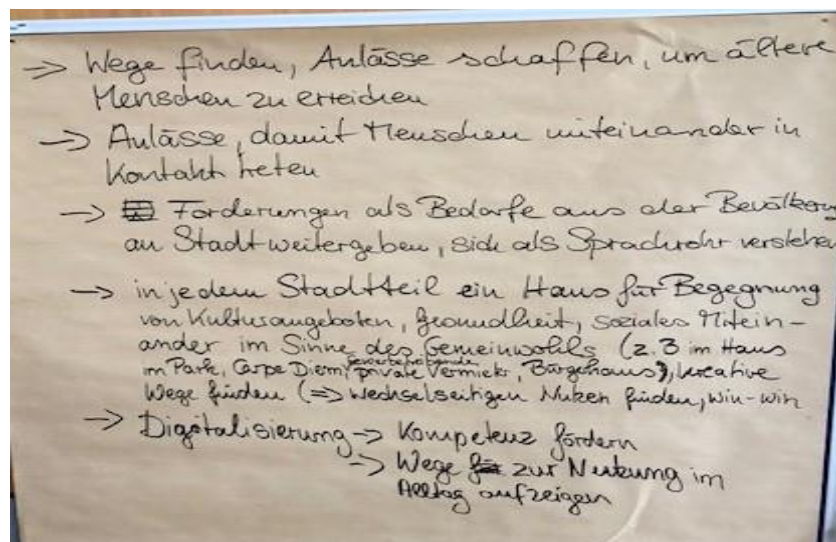 -> Wege finden, Anlässe schaffen, um ältere
Menschen zu erreichen
-> Anlässe, damit Menschen miteinander in
Kontakt treten
-> Forderungen als Bedarfe aus der
an Stadt weitergeben, sich als Sprachrohr verstehen
-> in jedem Stadtteil ein Haus für Begegnung
von Kulturangeboten, Gesundheit, soziales Mitein-
ander im Sinne des Gemeinwohls (z.B im Haus
im Park, Carpe Diem, private Vermieter, Bürgerhaus), kreative
Wege finden (=> wechselseitigen Nutzen finden, win-win
-> Digitalisierung -> Kompetenz fördern
-> Wege zur Nutzung im
Alltag aufzeigen